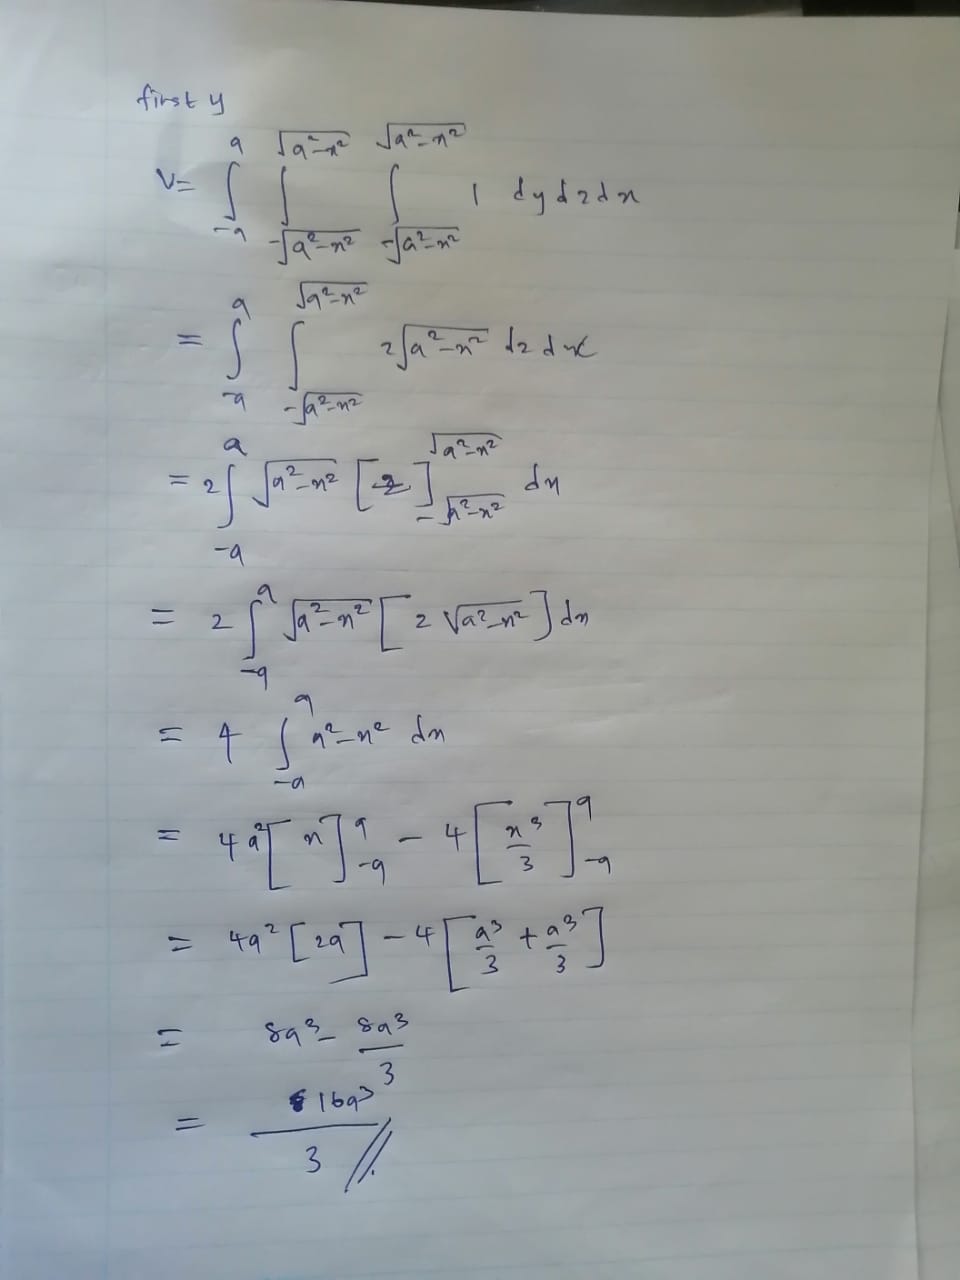 first y
V= ∫_{-a}^{a} ∫_{-√(a²-x²)}^{√(a²-x²)} ∫_{-√(a²-x²)}^{√(a²-x²)} 1 dy dz dx
= ∫_{-a}^{a} ∫_{-√(a²-x²)}^{√(a²-x²)} 2√(a²-x²) dz dx
= 2 ∫_{-a}^{a} √(a²-x²) [z]_{-√(a²-x²)}^{√(a²-x²)} dx
= 2 ∫_{-a}^{a} √(a²-x²) [2 √(a²-x²)] dx
= 4 ∫_{-a}^{a} a²-x² dx
= 4a² [x]_{-a}^{a} - 4 [x³/3]_{-a}^{a}
= 4a² [2a] - 4 [a³/3 + a³/3]
= 8a³ - 8a³/3
= 16a³/3 //.